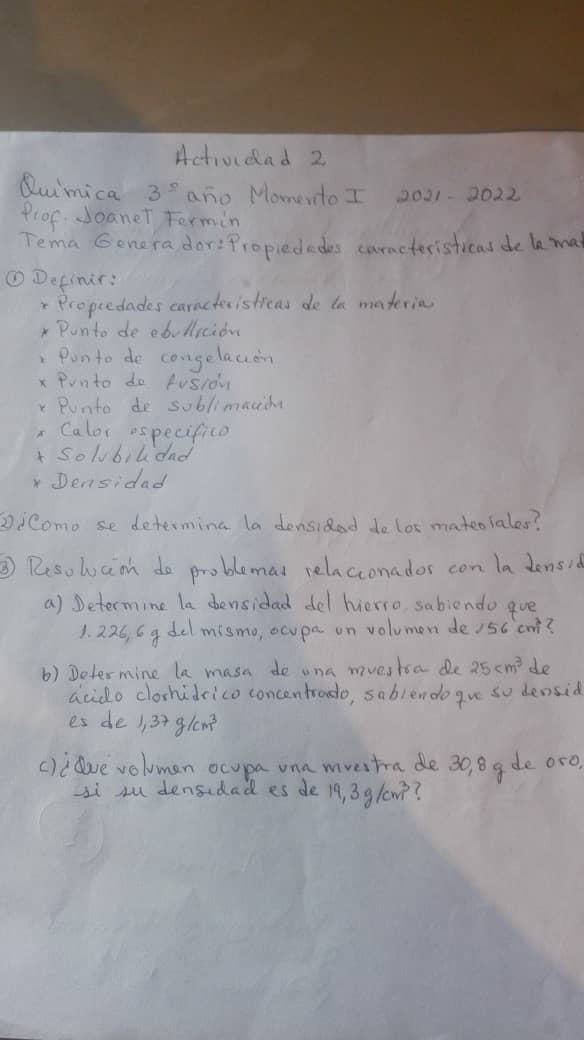 Actividad 2
Química 3º año Momento I 2021-2022
Prof. Joanet Fermín
Tema Generador: Propiedades características de la mat
① Definir:
* Propiedades características de la materia
* Punto de ebullición
* Punto de congelación
* Punto de fusión
* Punto de sublimación
* Calor específico
* Solubilidad
* Densidad
② ¿Como se determina la densidad de los materiales?
③ Resolución de problemas relacionados con la densid
a) Determine la densidad del hierro, sabiendo que
1.226,6 g del mismo, ocupa un volumen de 156 cm³?
b) Determine la masa de una muestra de 25 cm³ de
ácido clorhídrico concentrado, sabiendo que su densid
es de 1,37 g/cm³
c) ¿Qué volumen ocupa una muestra de 30,8 g de oro,
si su densidad es de 19,3 g/cm³?